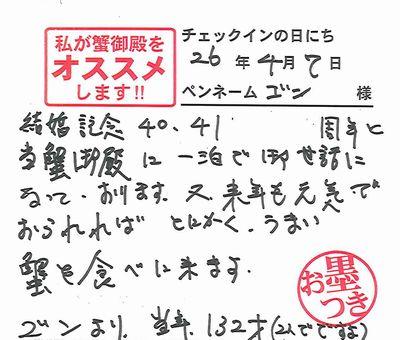 私が蟹御殿を
オススメ
します!!
チェックインの日にち
26年4月7日
ペンネーム ゴン 様
結婚記念 40、41 周年と
当蟹御殿に一泊で御世話に
なって、おります。又来年も元気で
おられれば とにかく、うまい
蟹を食べに来ます。
お墨つき
ゴンより、当年、132才(2人でですよ)